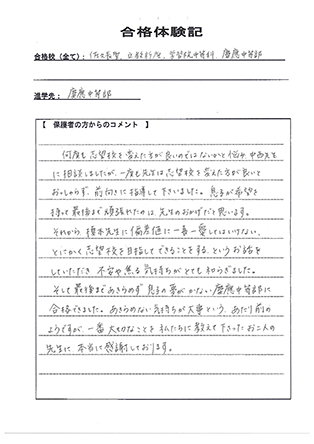 合格体験記
合格校（全て）： 佐久長聖、立教新座、学習院中等科、慶應中等部
進学先： 慶應中等部
【 保護者の方からのコメント 】
何度も志望校を変えた方が良いのではないかと悩み、中西先生
に相談しましたが、一度も先生は志望校を変えた方が良いと
おっしゃらず、前向きに指導して下さいました。息子が希望を
持って最後まで頑張れたのは、先生のおかげだと思います。
それから、榎本先生に偏差値に一喜一憂してはいけない、
とにかく志望校を目指してできることをする、というお話を
していただき、不安や焦る気持ちがとても和らぎました。
そして最後まであきらめず、息子の夢がかない慶應中等部に
合格できました。あきらめない気持ちが大事という、あたり前の
ようですが、一番大切なことを私たちに教えて下さったお二人の
先生に、本当に感謝しております。